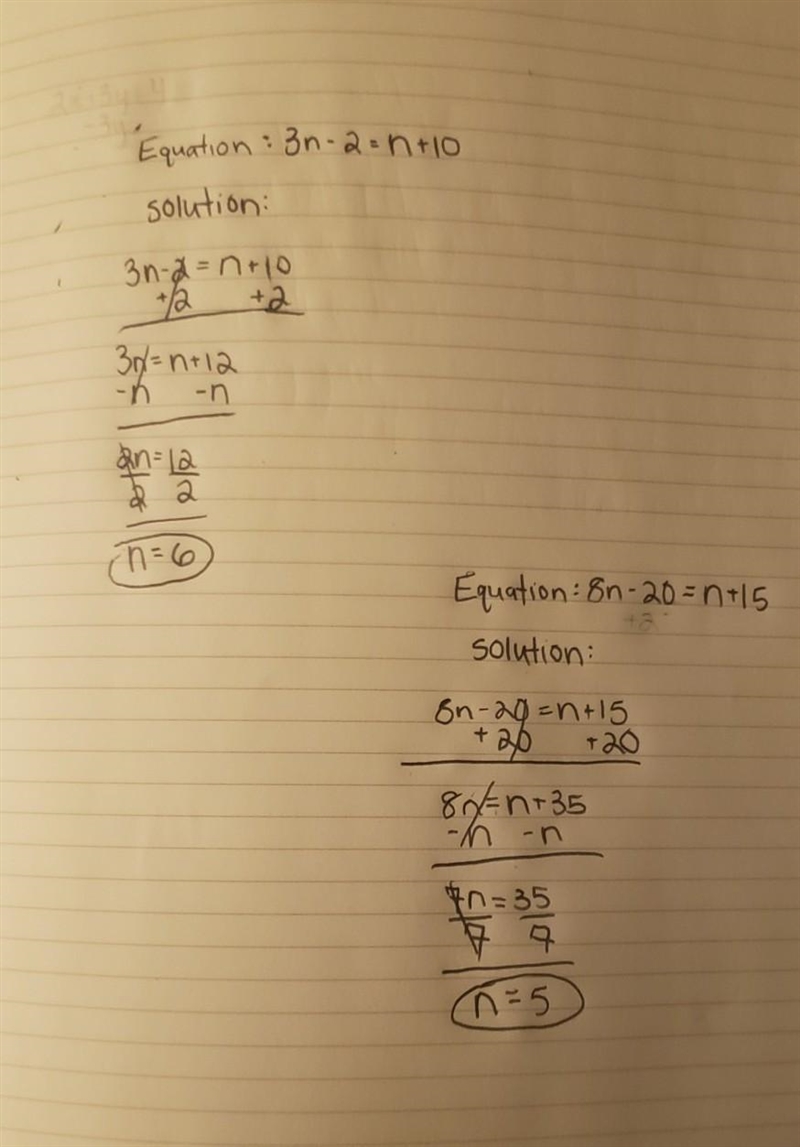 Equation: 3n-2=n+10
solution:
3n-2=n+10
+2 +2
3n=n+12
-n -n
2n=12
2 2
n=6
Equation: 8n-20=n+15
solution:
8n-20=n+15
+20 +20
8n=n+35
-n -n
7n=35
7 7
n=5